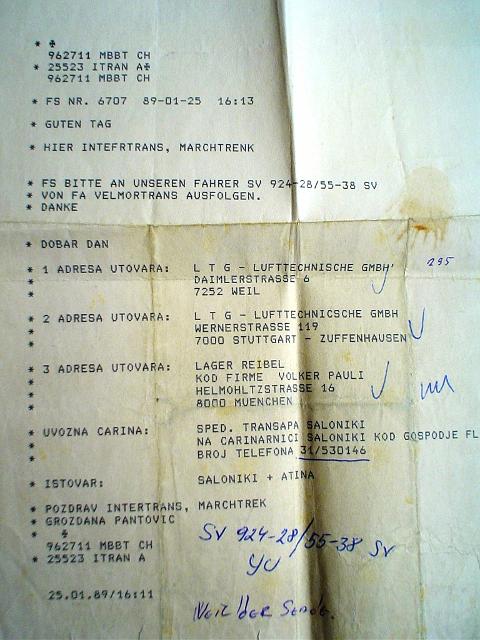 * ✠
962711 MBBT CH
* 25523 ITRAN A✠
962711 MBBT CH
* FS NR. 6707 89-01-25 16:13
* GUTEN TAG
* HIER INTEFRTRANS, MARCHTRENK
* FS BITTE AN UNSEREN FAHRER SV 924-28/55-38 SV
* VON FA VELMORTRANS AUSFOLGEN.
* DANKE
* DOBAR DAN
* 1 ADRESA UTOVARA: L T G - LUFTTECHNISCHE GMBH' 295
* DAIMLERSTRASSE 6
* 7252 WEIL
* 2 ADRESA UTOVARA: L T G - LUFTTECHNICSCHE GMBH
* WERNERSTRASSE 119
* 7000 STUTTGART - ZUFFENHAUSEN
* 3 ADRESA UTOVARA: LAGER REIBEL
* KOD FIRME VOLKER PAULI
* HELMOHLTZSTRASSE 16
* 8000 MUENCHEN
* UVOZNA CARINA: SPED. TRANSAPA SALONIKI
* NA CARINARNICI SALONIKI KOD GOSPODJE FL
* BROJ TELEFONA 31/530146
* ISTOVAR: SALONIKI + ATINA
* POZDRAV INTERTRANS, MARCHTREK
* GROZDANA PANTOVIC
✠
962711 MBBT CH
* 25523 ITRAN A
SV 924-28/55-38 SV
YU
25.01.89/16:11
der